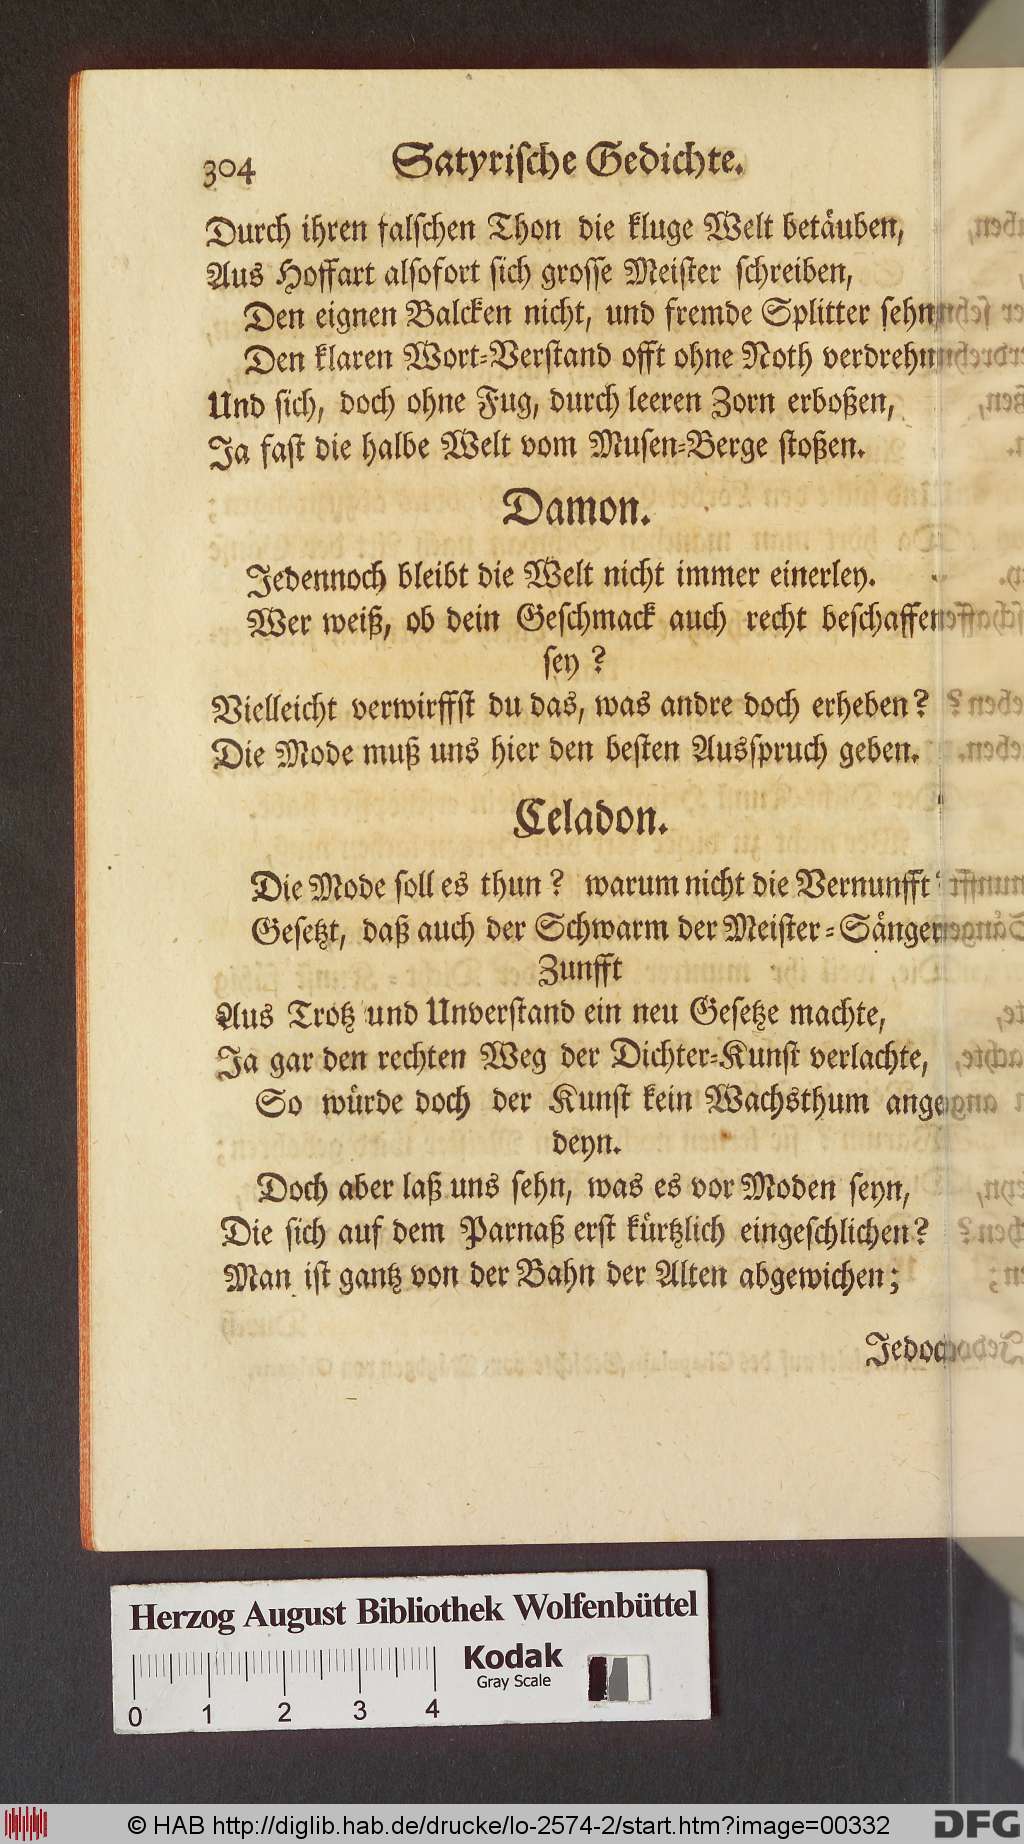 304 Satyrische Gedichte.
Durch ihren falschen Thon die kluge Welt betäuben,
Aus Hoffart alsofort sich grosse Meister schreiben,
Den eignen Balcken nicht, und fremde Splitter sehn
Den klaren Wort-Verstand offt ohne Noth verdrehn
Und sich, doch ohne Fug, durch leeren Zorn erboßen,
Ja fast die halbe Welt vom Musen-Berge stoßen.
Damon.
Jedennoch bleibt die Welt nicht immer einerley.
Wer weiß, ob dein Geschmack auch recht beschaffen
sey?
Vielleicht verwirffst du das, was andre doch erheben?
Die Mode muß uns hier den besten Ausspruch geben.
Celadon.
Die Mode soll es thun? warum nicht die Vernunfft
Gesetzt, daß auch der Schwarm der Meister-Sänger
Zunfft
Aus Trotz und Unverstand ein neu Gesetze machte,
Ja gar den rechten Weg der Dichter-Kunst verlachte,
So würde doch der Kunst kein Wachsthum ange
deyn.
Doch aber laß uns sehn, was es vor Moden seyn,
Die sich auf dem Parnaß erst kürtzlich eingeschlichen?
Man ist gantz von der Bahn der Alten abgewichen;
Jedoc
Herzog August Bibliothek Wolfenbüttel
Kodak
Gray Scale
0 1 2 3 4
© HAB http://diglib.hab.de/drucke/lo-2574-2/start.htm?image=00332
DFG